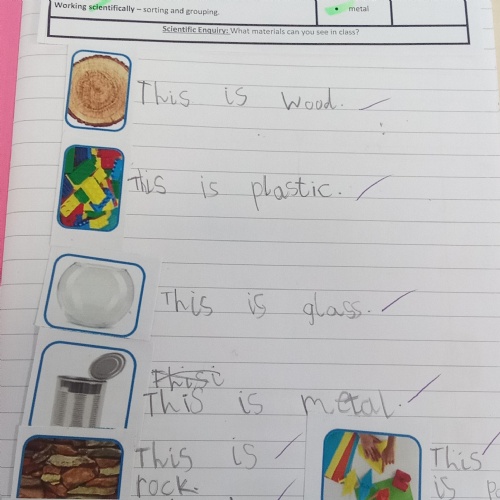 Working scientifically – sorting and grouping.
• metal
Scientific Enquiry: What materials can you see in class?
This is wood.
This is plastic.
This is glass.
This is metal.
This is
rock.
This
is